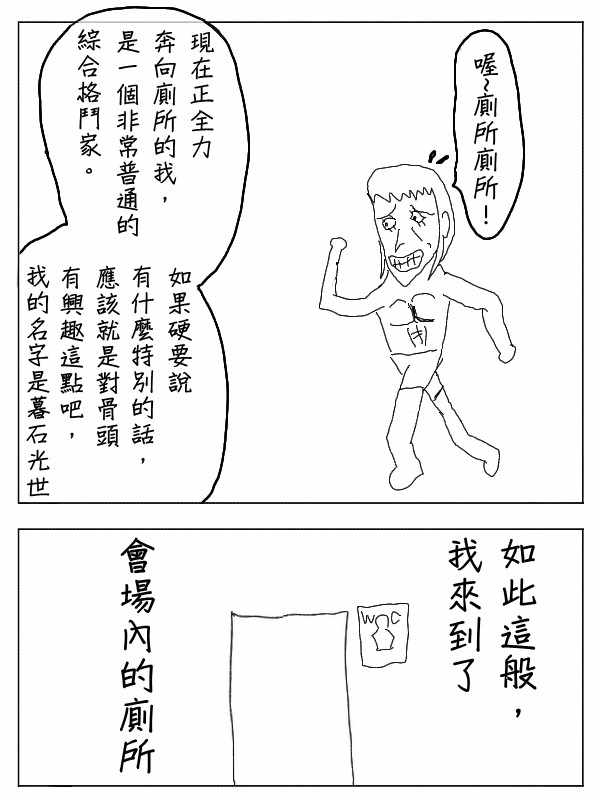 喔~廁所廁所！
現在正全力
奔向廁所的我，
是一個非常普通的
綜合格鬥家。
如果硬要說
有什麼特別的話，
應該就是對骨頭
有興趣這點吧，
我的名字是暮石光世
如此這般，
我來到了
WC
會場內的廁所